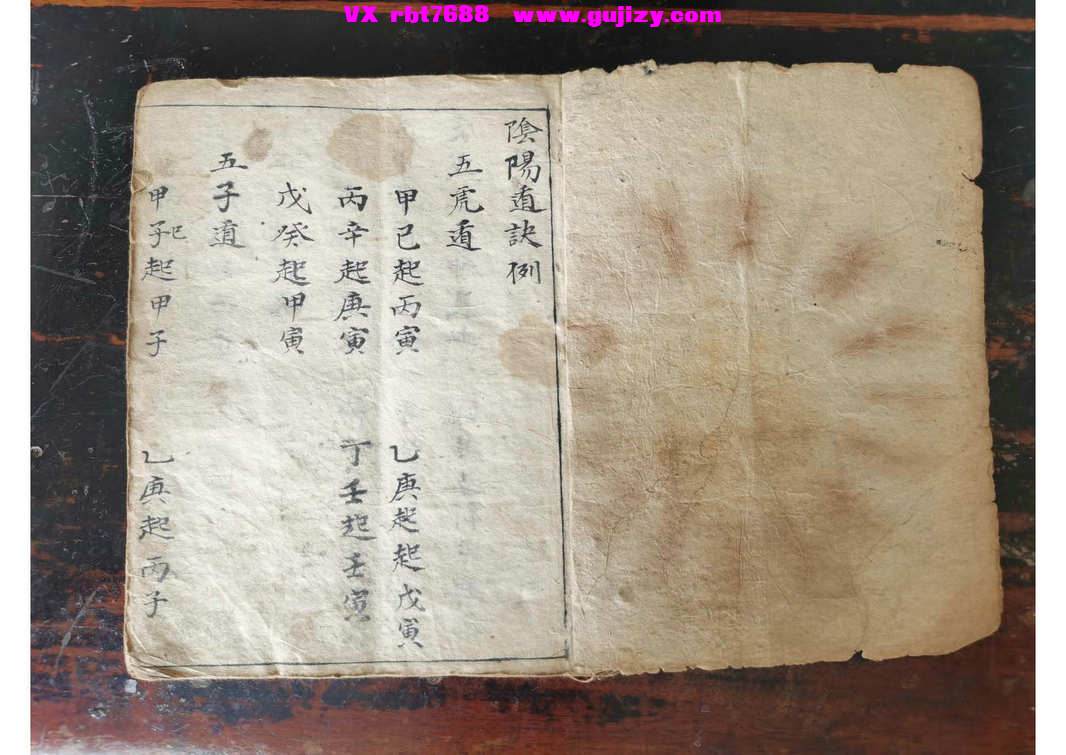 VX rbt7688 www.gujizy.com
陰陽遁訣例
五虎遁
甲己起丙寅 乙庚起起戊寅
丙辛起庚寅 丁壬起壬寅
戊癸起甲寅
五子遁
甲子己起甲子 乙庚起丙子